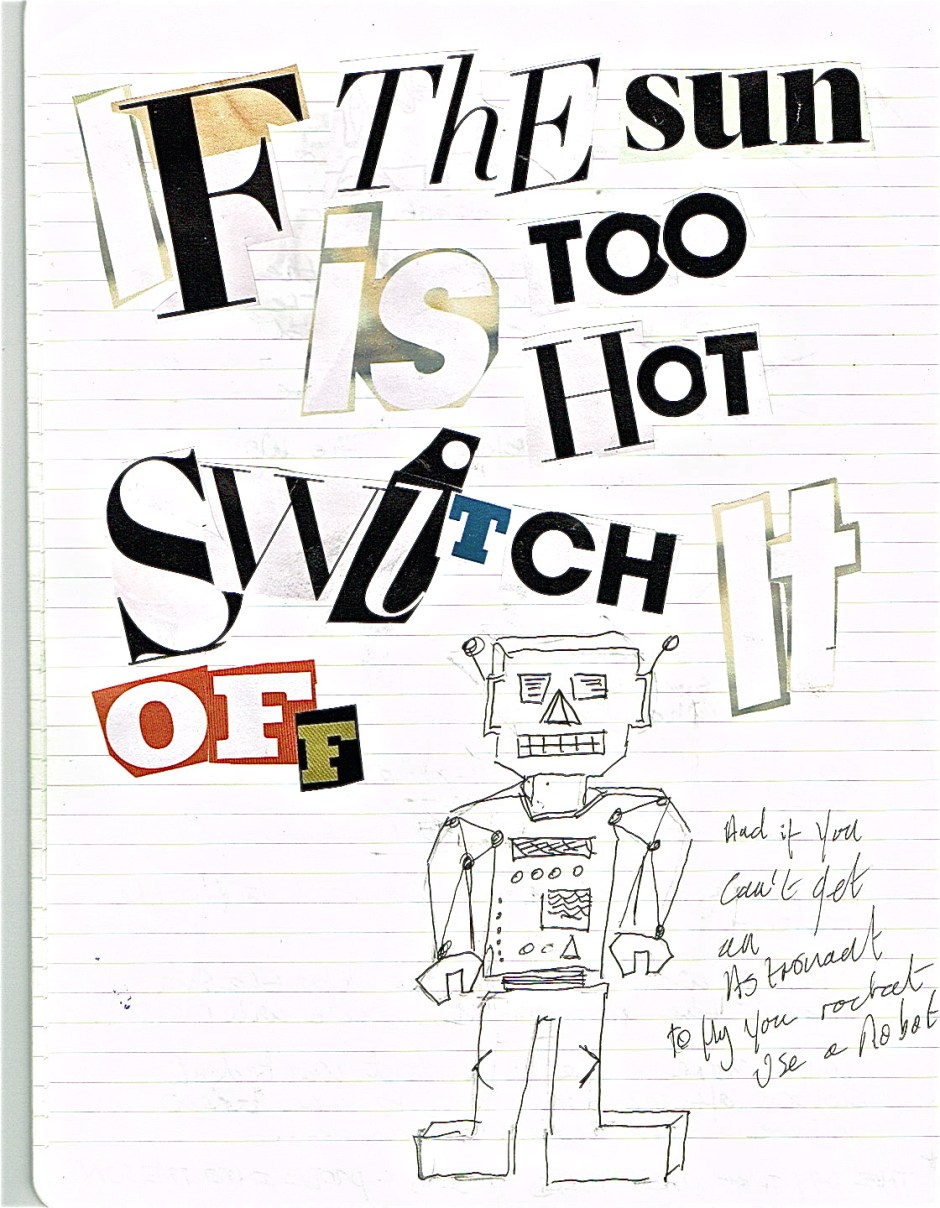 IF ThE sun
is TOO
HOT
SWiTCH It
OFF
And if you
Can't get
an
Astronaut
to fly you rocket
Use a Robot